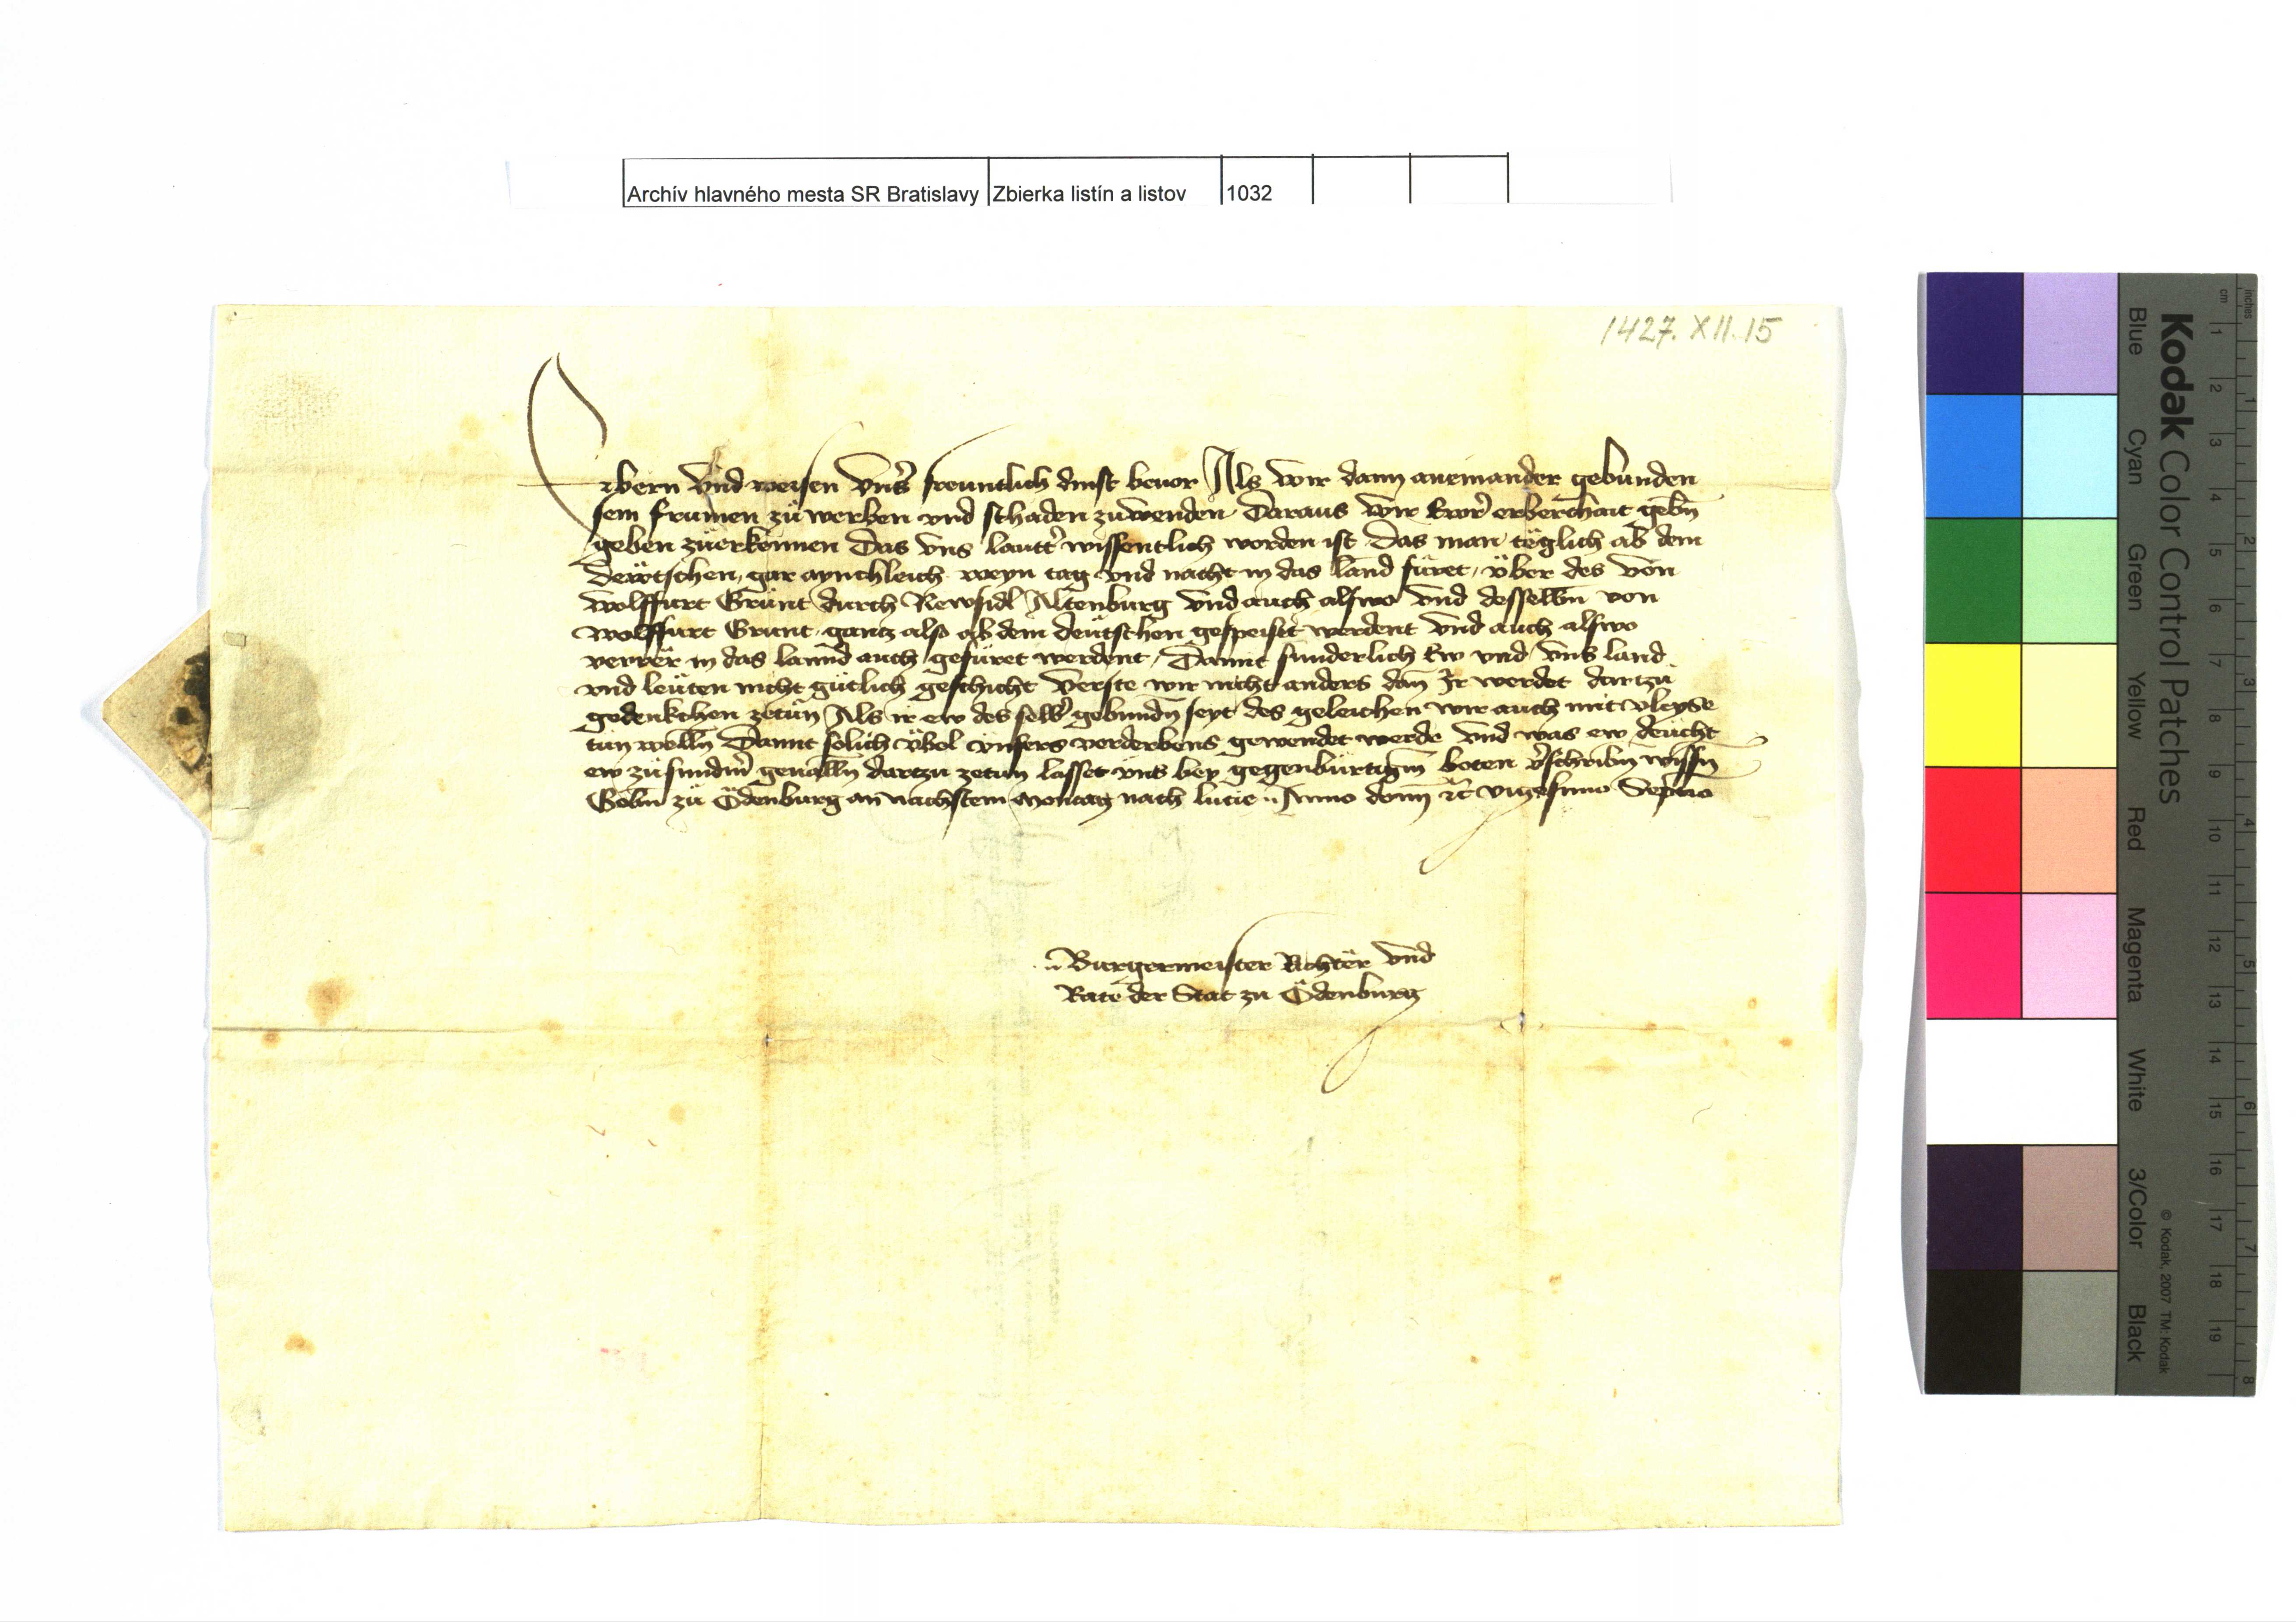 Archív hlavného mesta SR Bratislavy Zbierka listín a listov 1032
1427. XII. 15
Erbern vnd weisen vnsˀ freuntlich dinst beuor Als wir dann aneinander gebunden
sein frumen zu werben vnd schaden zuwenden Daraus wir Ewrˀ erberchait gebn̄
geben zuerkennen Das vns lauttˀ wissentlich worden ist Das man täglich ab dem
Dewtschen, gar aynchleich weyn tag vnd nacht in das land füret, über des von
Wolffurt Grunt durch Newsidl Altenburg vnd auch alswo vnd desselbn̄ von
Wolffurt Grunt gantz also ab dem deutschen gespeist werdent vnd auch alswo
verrer in das lannd auch gefüret werdent, Damit sunderlich Ew vnd vns land
vnd leuten nicht gütlich geschicht Verste wir nicht anders dan̄ Ir werdet dartzu
gedenkchen zetun Als ir ew des selbˀ gebundn̄ seyt des geleichen wir auch mit vleyse
tun welln̄ Damit solich übel vnsers verderbens gewendet werde vnd was ew deucht
ew zu sundm̄ geualln̄ dartzu zetun lasset vns bey gegenbürtigm̄ boten vˀschribn̄ wissn̄
Gebn̄ zu Ödenburg an nachstem Montag nach lucie Anno domī ⁊c̄ vicesimo Septīo
Burgermeister Richter vnd
Rate der Stat zu Ödenburg
Kodak Color Control Patches
Blue Cyan Green Yellow Red Magenta White 3/Color Black
© Kodak, 2007 TM: Kodak
inches 1 2 3 4 5 6 7 8
cm 1 2 3 4 5 6 7 8 9 10 11 12 13 14 15 16 17 18 19